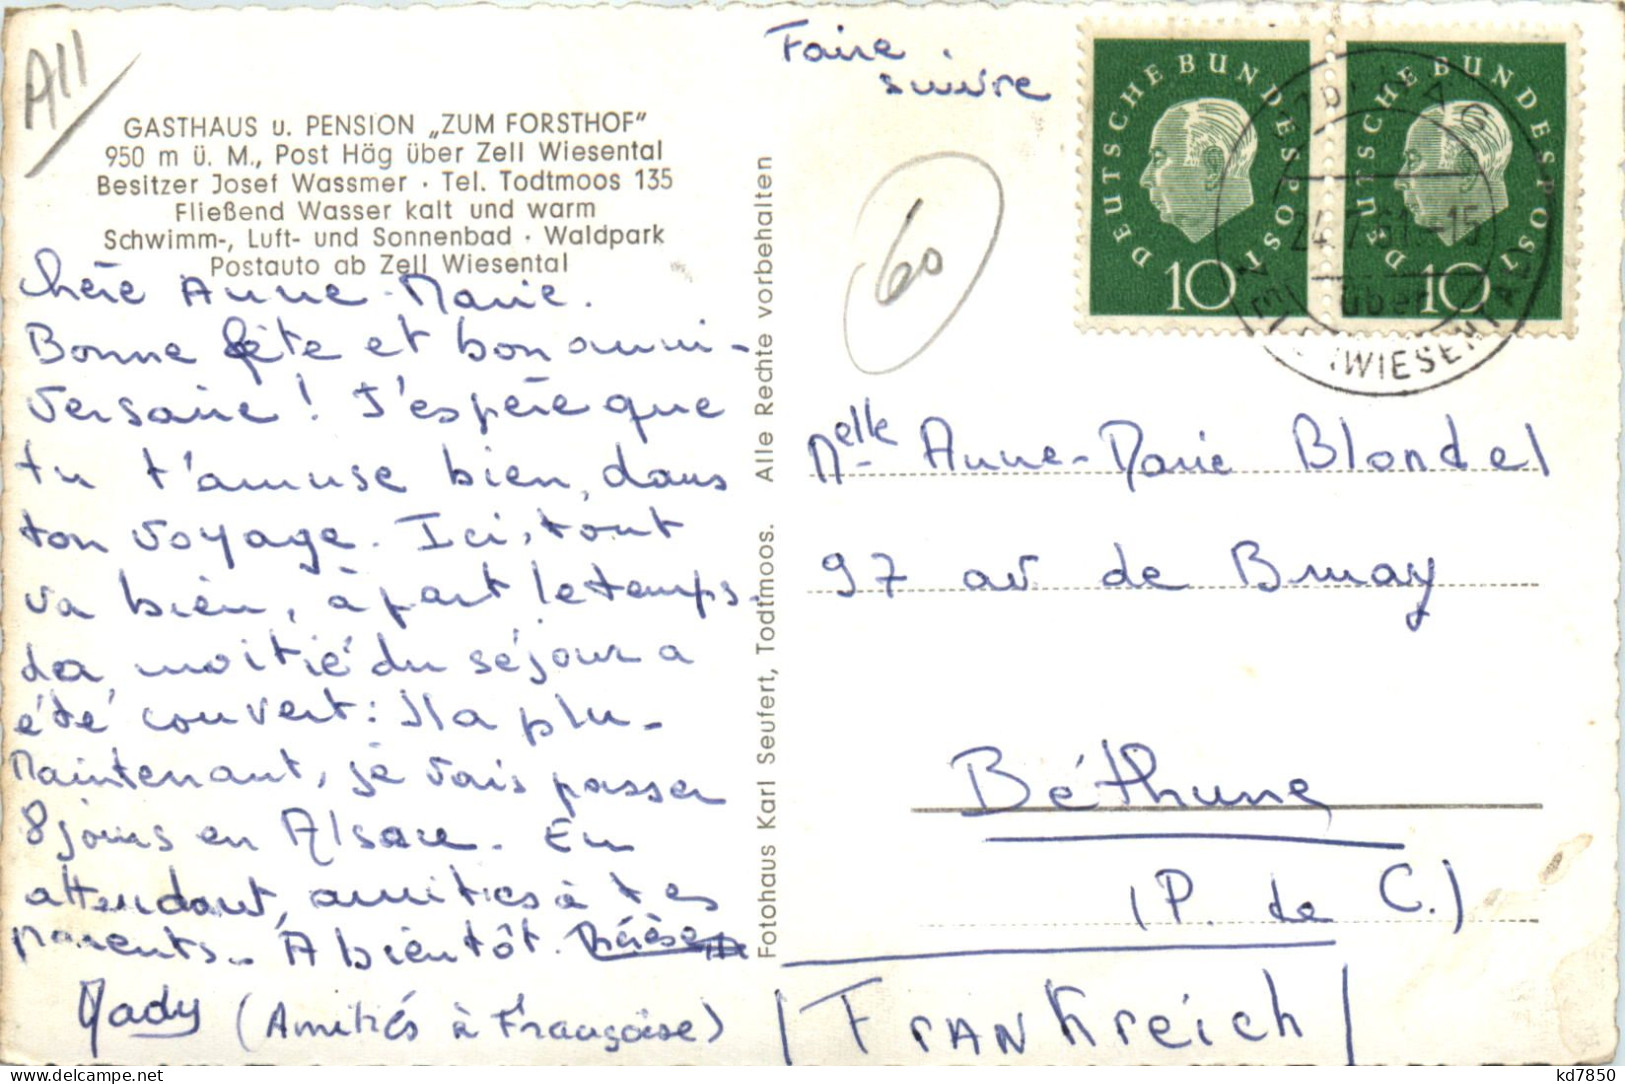 A11
GASTHAUS u. PENSION „ZUM FORSTHOF"
950 m ü. M., Post Häg über Zell Wiesental
Besitzer Josef Wassmer · Tel. Todtmoos 135
Fließend Wasser kalt und warm
Schwimm-, Luft- und Sonnenbad · Waldpark
Postauto ab Zell Wiesental
Chère Anne-Marie.
Bonne fête et bon anni-
versaire ! J'espère que
tu t'amuse bien, dans
ton voyage. Ici, tout
va bien, à part le temps.
La moitié du séjour a
été couvert : Il a plu.
Maintenant, je vais passer
8 jours en Alsace. En
attendant, amitiés à tes
parents. A bientôt. Thérèse
Mady (Amitiés à Françoise)
Fotohaus Karl Seufert, Todtmoos. Alle Rechte vorbehalten
Faire suivre
60
DEUTSCHE BUNDESPOST
10
DEUTSCHE BUNDESPOST
10
24.7.61.-15
über
(WIESENTAL)
Melle Anne-Marie Blondel
97 av de Bruay
Béthune
(P. de C.)
/ FRANKreich /
kd7850